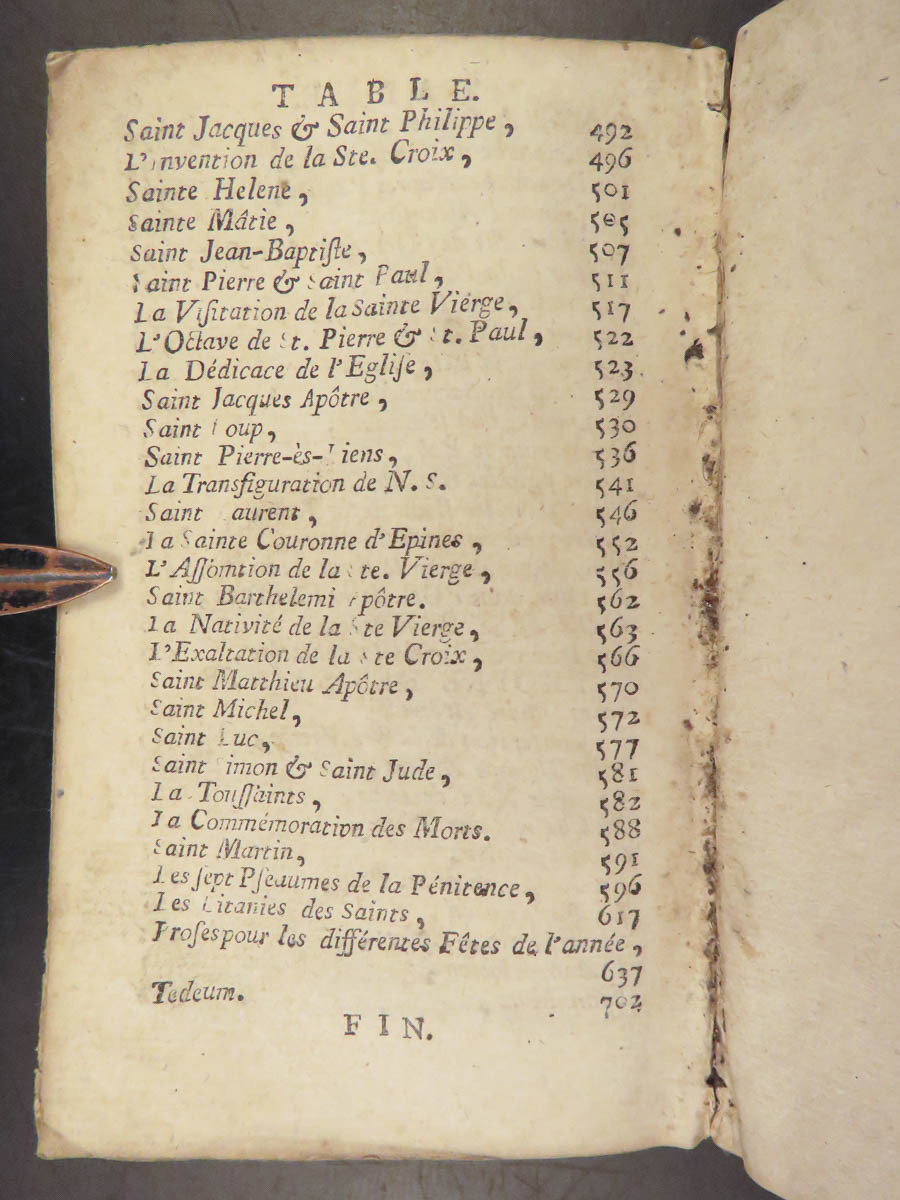 TABLE.
Saint Jacques & Saint Philippe, 492
L'invention de la Ste. Croix, 496
Sainte Helene, 501
Sainte Mâtie, 505
Saint Jean-Baptiſte, 507
Saint Pierre & Saint Paul, 511
La Viſitation de la Sainte Vierge, 517
L'Octave de St. Pierre & St. Paul, 522
La Dédicace de l'Egliſe, 523
Saint Jacques Apôtre, 529
Saint Loup, 530
Saint Pierre-ès-Liens, 536
La Transfiguration de N. S. 541
Saint Laurent, 546
La Sainte Couronne d'Epines, 552
L'Aſſomtion de la Ste. Vierge, 556
Saint Barthelemi Apôtre. 562
La Nativité de la Ste Vierge, 563
L'Exaltation de la Ste Croix, 566
Saint Matthieu Apôtre, 570
Saint Michel, 572
Saint Luc, 577
Saint Simon & Saint Jude, 581
La Touſſaints, 582
La Commémoration des Morts. 588
Saint Martin, 591
Les ſept Pſeaumes de la Pénitence, 596
Les Litanies des Saints, 617
Proſes pour les différentes Fêtes de l'année,
637
Tedeum. 702
FIN.